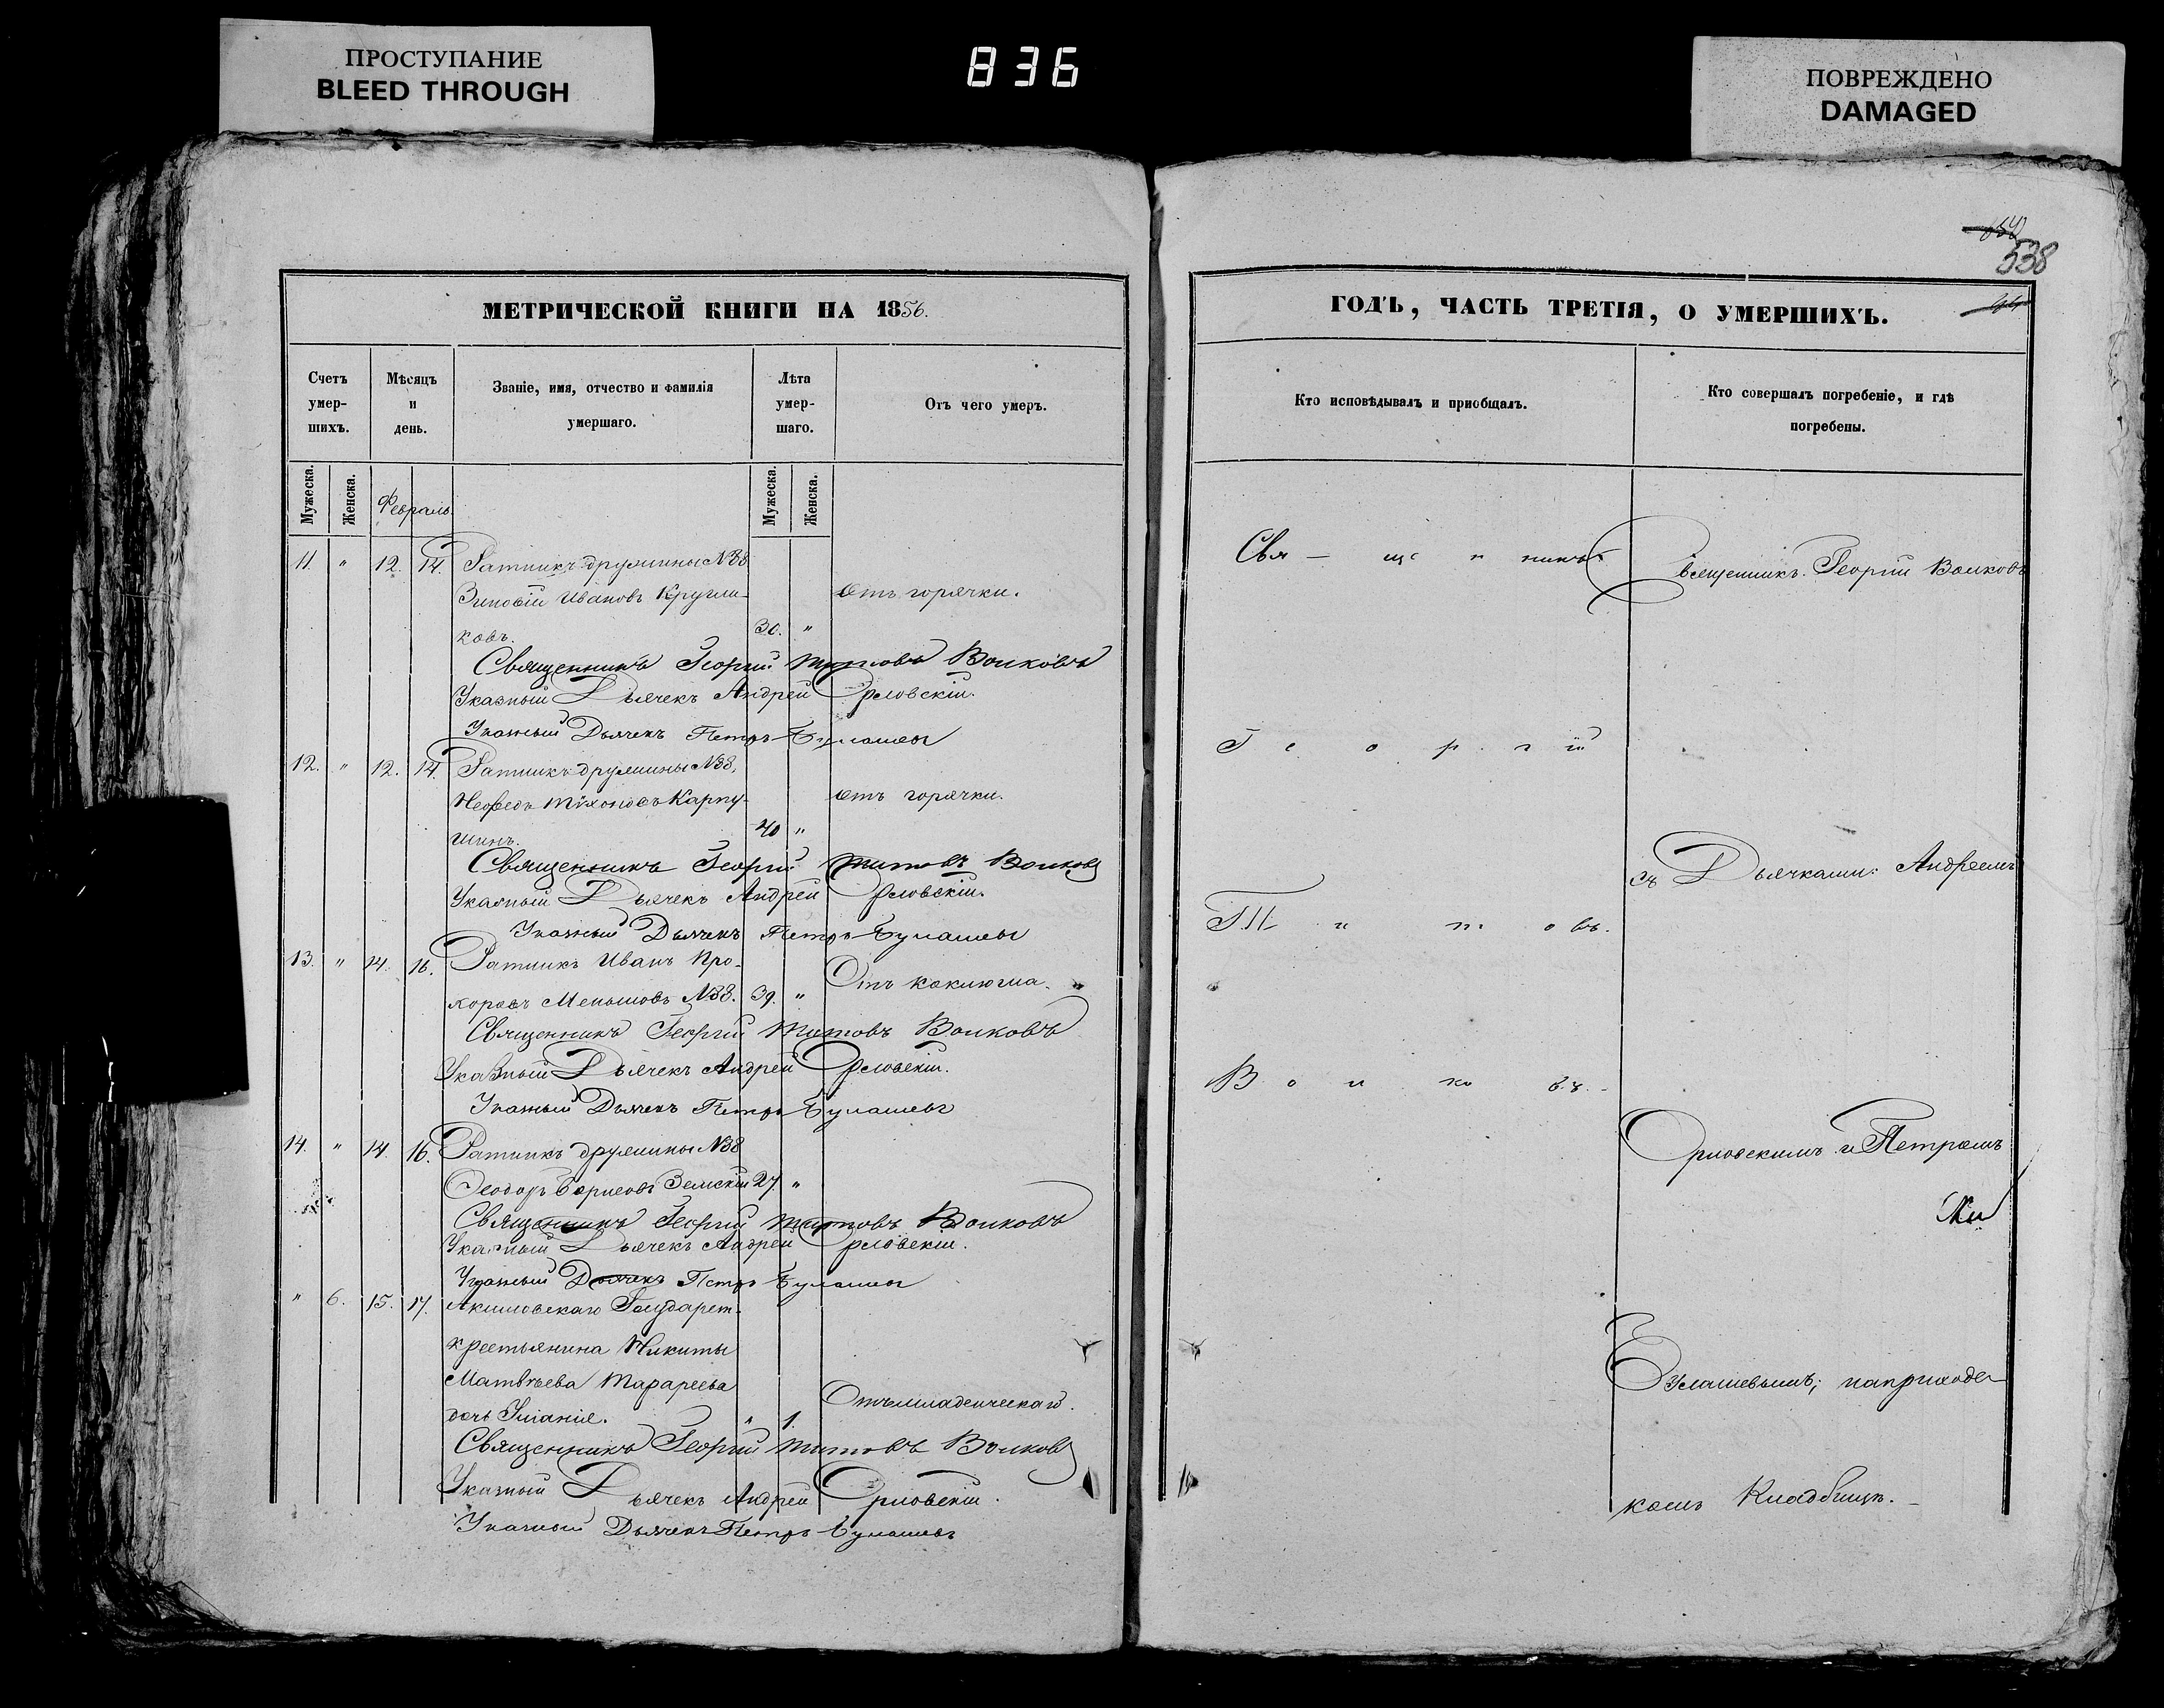 ПРОСТУПАНИЕ
BLEED THROUGH
836
ПОВРЕЖДЕНО
DAMAGED
538
МЕТРИЧЕСКОЙ КНИГИ НА 1856.
Счетъ умер-шихъ.
Мѣсяцъ и день.
Званіе, имя, отчество и фамилія умершаго.
Лѣта умер-шаго.
Отъ чего умеръ.
Мужеска. Женска. Февраль. Мужеска. Женска.
11. " 12. 14. Ратникъ дружины №38
Зиновій Ивановъ Кругли- Отъ горячки.
ковъ. 30. "
Священникъ Георгій Титовъ Волковъ
Указный Дьячекъ Андрей Орловскій.
Указный Дьячекъ Петръ Булашевъ
12. " 12. 14. Ратникъ дружины №38,
Нефедъ Тихоновъ Карпу- Отъ горячки.
шинъ. 40 "
Священникъ Георгій Титовъ Волковъ
Указный Дьячекъ Андрей Орловскій.
Указный Дьячекъ Петръ Булашевъ
13. " 14. 16. Ратникъ Иванъ Про-
хоровъ Меньшовъ №38. 39. " Отъ коклюша.
Священникъ Георгій Титовъ Волковъ
Указный Дьячекъ Андрей Орловскій.
Указный Дьячекъ Петръ Булашевъ
14. " 14. 16. Ратникъ дружины №38
Ѳеодоръ Борисовъ Земскій 27 "
Священникъ Георгій Титовъ Волковъ
Указный Дьячекъ Андрей Орловскій.
Указный Дьячекъ Петръ Булашевъ
" 6. 15. 17. Акимовскаго Государст.
крестьянина Никиты
Матвѣева
дочь " 1. Отъ младенческаго.
Священникъ Георгій Титовъ Волковъ
Указный Дьячекъ Андрей Орловскій.
Указный Дьячекъ Петръ Булашевъ
ГОДЪ, ЧАСТЬ ТРЕТІЯ, О УМЕРШИХЪ.
Кто исповѣдывалъ и пріобщалъ.
Кто совершалъ погребеніе, и гдѣ погребены.
Свя-щенникъ
Георгій
Титовъ.
Волковъ.
Священникъ Георгій Волковъ
съ Дьячками: Андреемъ
Орловскимъ и Петромъ
Булашевымъ; на приходс-
комъ Кладбищѣ.